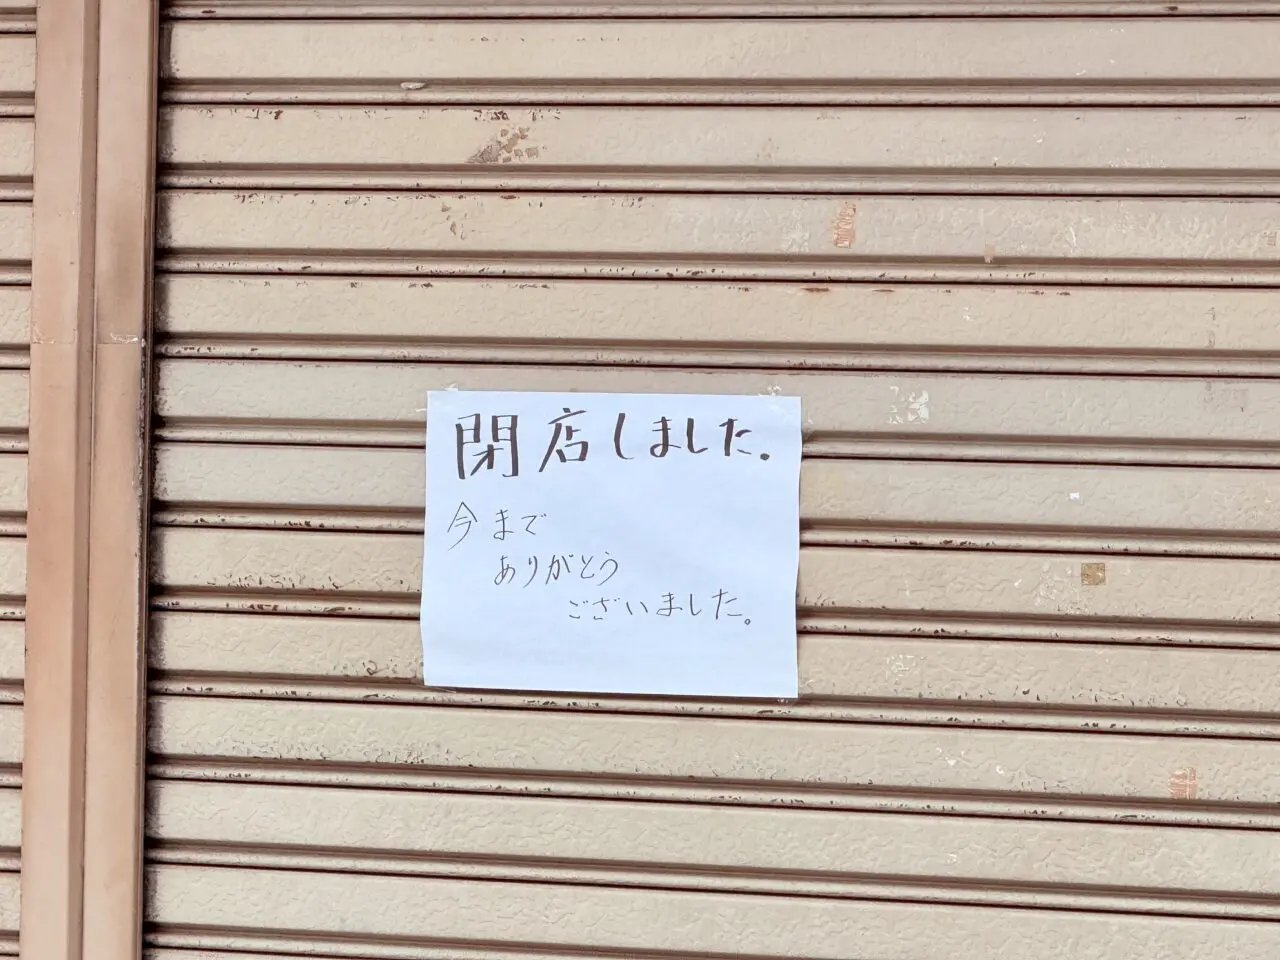 閉店しました。
今まで
ありがとう
ございました。